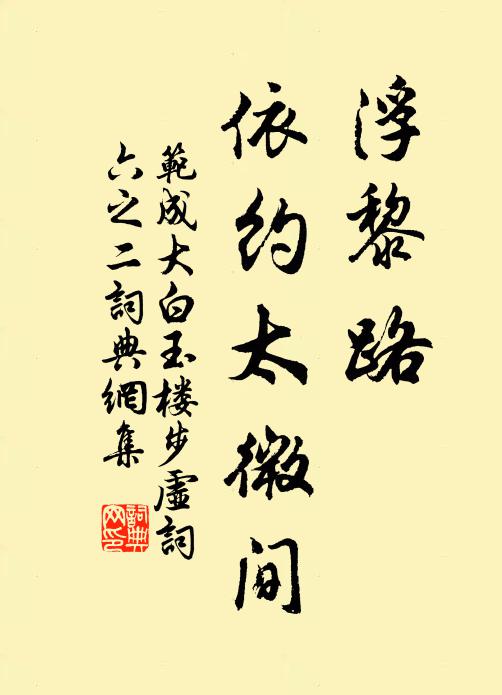 浮黎路
依约太微间
範成大白玉楼步虛詞
六之二詞典網集
詞典
网印